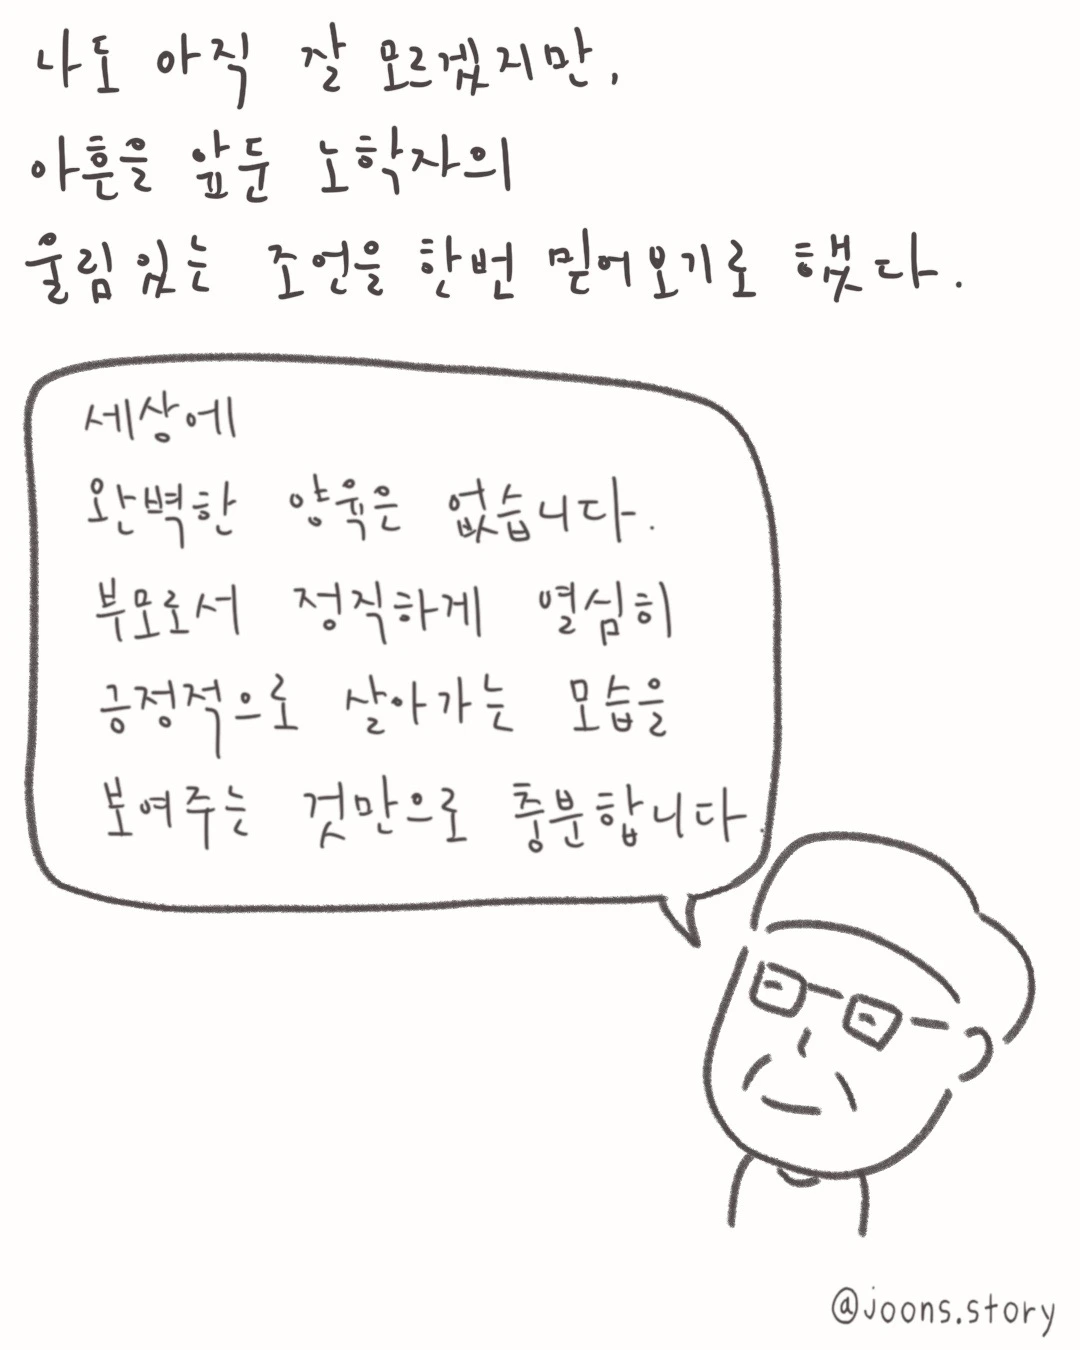 나도 아직 잘 모르겠지만,
아흔을 앞둔 노학자의
울림있는 조언을 한번 믿어보기로 했다.
세상에
완벽한 양육은 없습니다.
부모로서 정직하게 열심히
긍정적으로 살아가는 모습을
보여주는 것만으로 충분합니다.
@joons.story